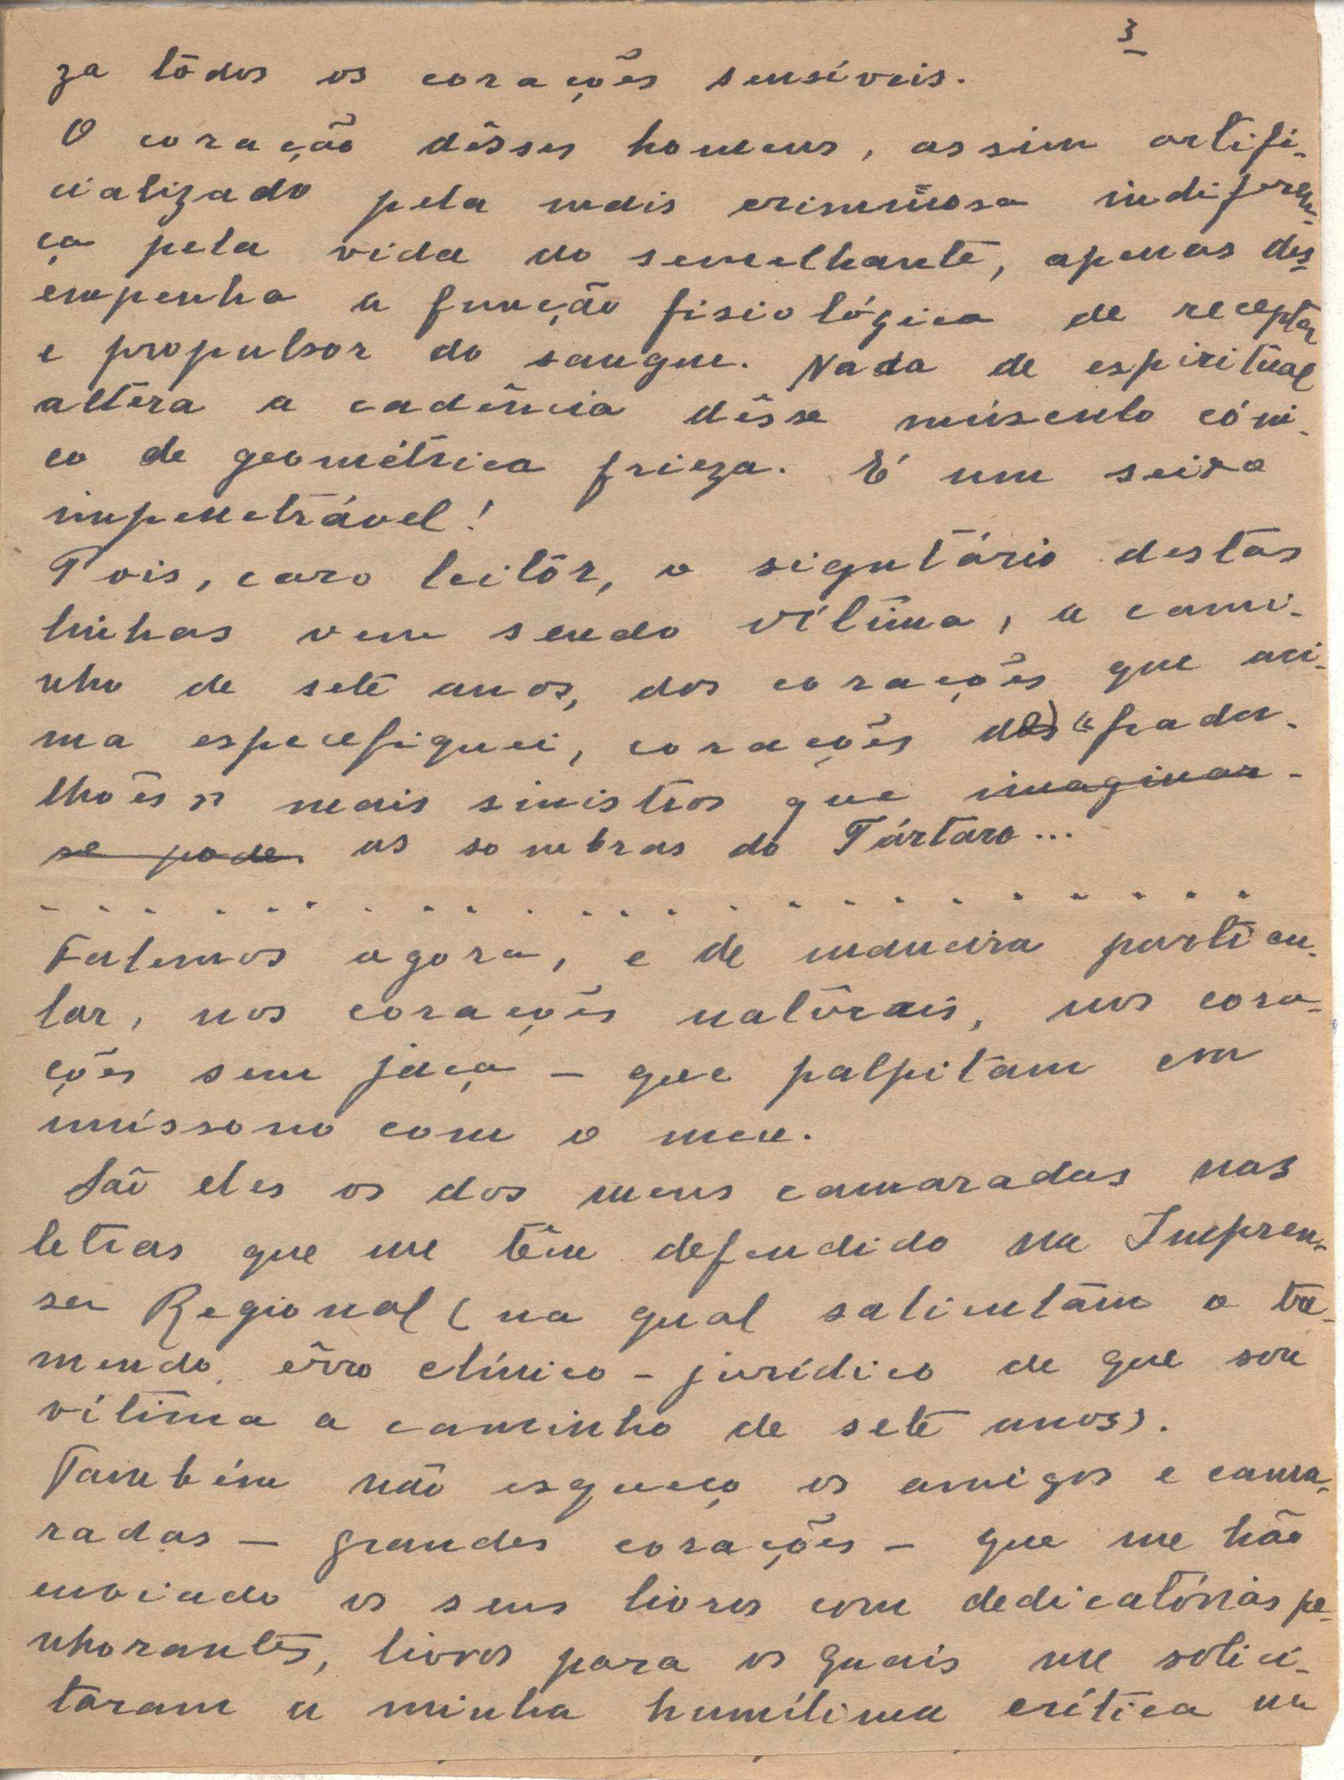 3
za todos os corações sensíveis.
O coração dêsses homens, assim artifi-
cializado pela mais criminosa indiferen-
ça pela vida do semelhante, apenas des-
empenha a função fisiológica de receptor
e propulsor do sangue. Nada de espiritual
altera a cadência dêsse músculo cóni-
co de geométrica frieza. É um seixo
impenetrável!
Pois, caro leitôr, o signtário destas
linhas vem sendo vítima, a cami-
nho de sete anos, dos corações que aci-
ma especefiquei, corações de "frada-
lhões" mais sinistros que imaginar-
se pode. as sombras do Tártaro...
. . . . . . . . . . . . . . . . . . . . . .
Falemos agora, e de maneira particu-
lar, nos corações naturais, nos cora-
ções sem jaça - que palpitam em
uníssono com o meu.
São eles os dos meus camaradas nas
letras que me têm defendido na Impren-
sa Regional (na qual salientam o tre-
mendo êrro clínico-jurídico de que sou
vítima a caminho de sete anos).
Também não esqueço os amigos e cama-
radas - grandes corações - que me hão
enviado os seus livros com dedicatórias pe-
nhorantes, livros para os quais me solici-
taram a minha humílima crítica na